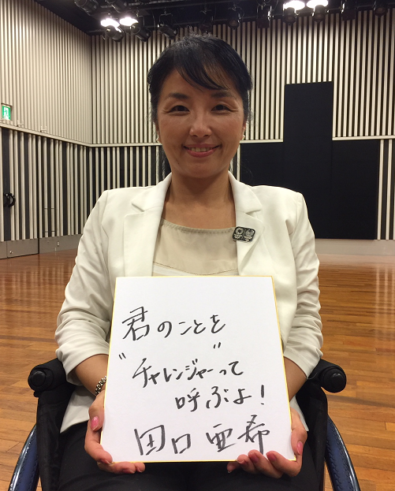 君のことを
"チャレンジャー"って
呼ぶよ!
田口亜希